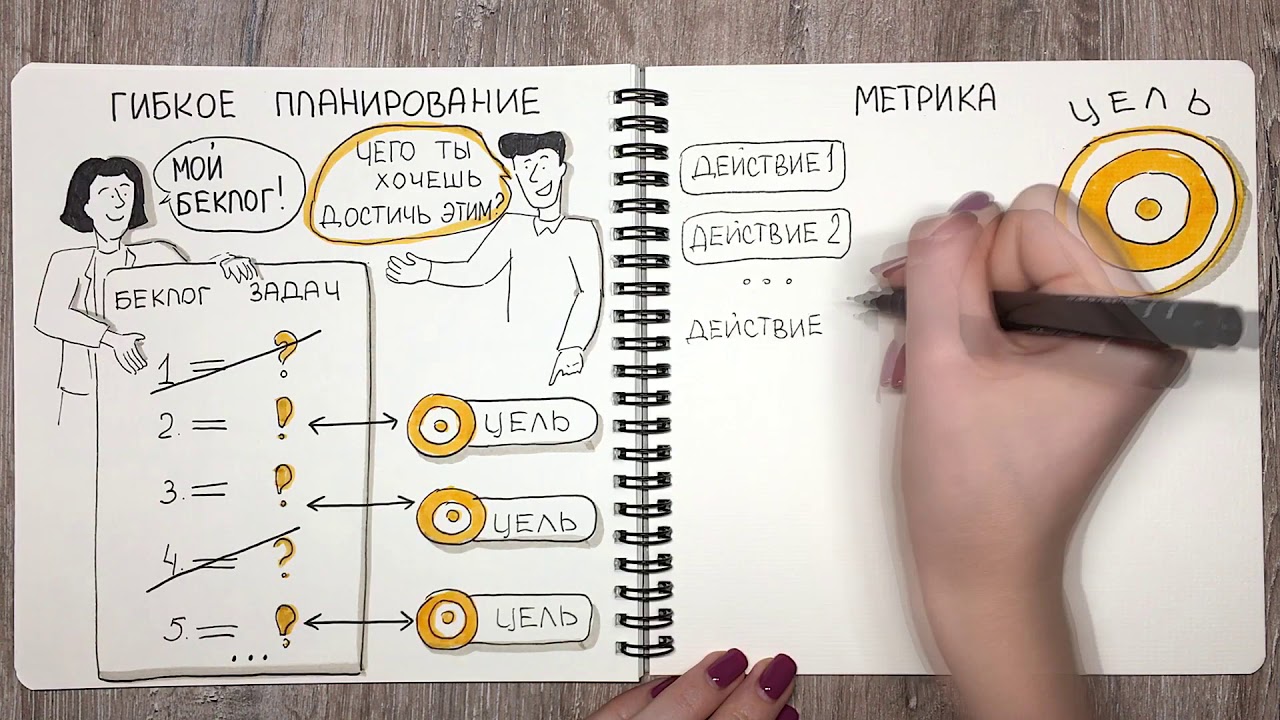 ГИБКОЕ ПЛАНИРОВАНИЕ
МОЙ
БЕКЛОГ!
ЧЕГО ТЫ
ХОЧЕШЬ
ДОСТИЧЬ ЭТИМ?
БЕКЛОГ ЗАДАЧ
1 = ?
2. = !
3. = !
4. = ?
5. = !
...
ЦЕЛЬ
ЦЕЛЬ
ЦЕЛЬ
МЕТРИКА
ЦЕЛЬ
ДЕЙСТВИЕ 1
ДЕЙСТВИЕ 2
...
ДЕЙСТВИЕ